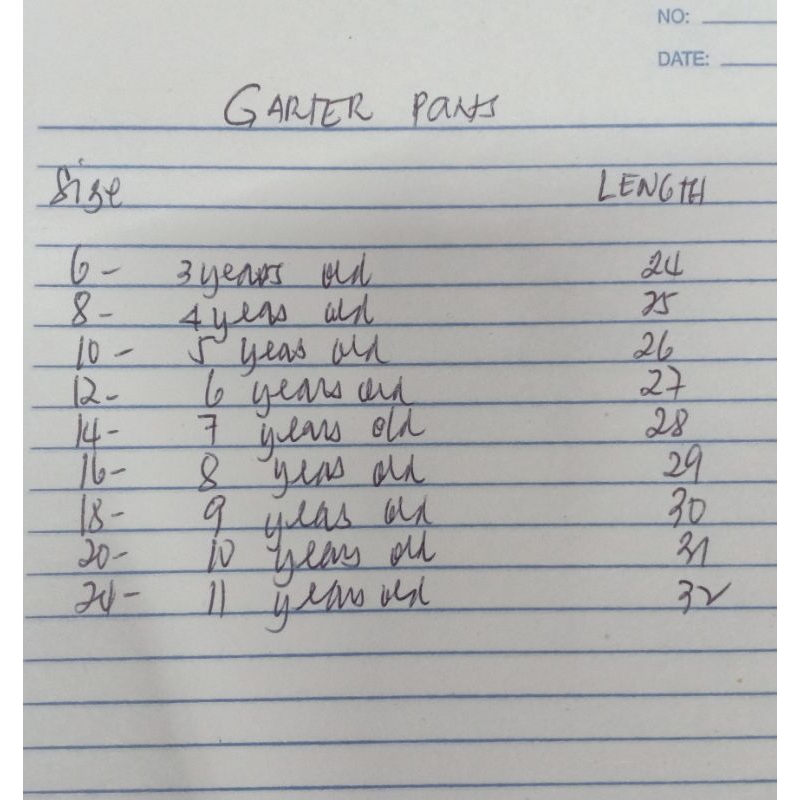 NO:
DATE:
GARTER PANTS
Size LENGTH
6 - 3 years old 24
8 - 4 years old 25
10 - 5 years old 26
12 - 6 years old 27
14 - 7 years old 28
16 - 8 years old 29
18 - 9 years old 30
20 - 10 years old 31
24 - 11 years old 32